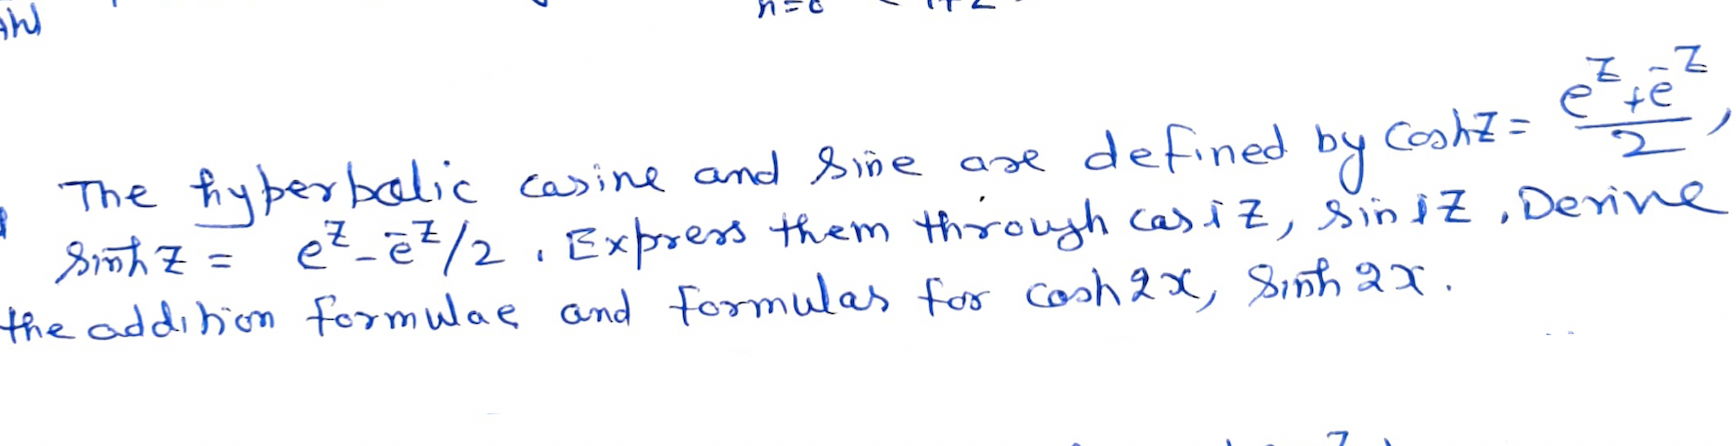 n=0
The hyperbolic cosine and sine are defined by cosh Z = (e^Z + e^-Z)/2,
sinh Z = e^Z - e^-Z/2. Express them through cos iZ, sin iZ. Derive
the addition formulae and formulas for cosh 2x, sinh 2x.